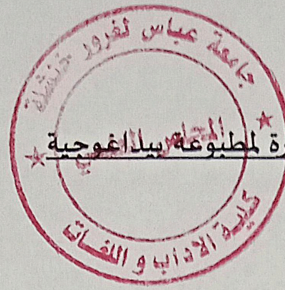 جامعة عباس لغرور خنشلة
رة لمطبوعة بيداغوجية
كلية الآداب و اللغات